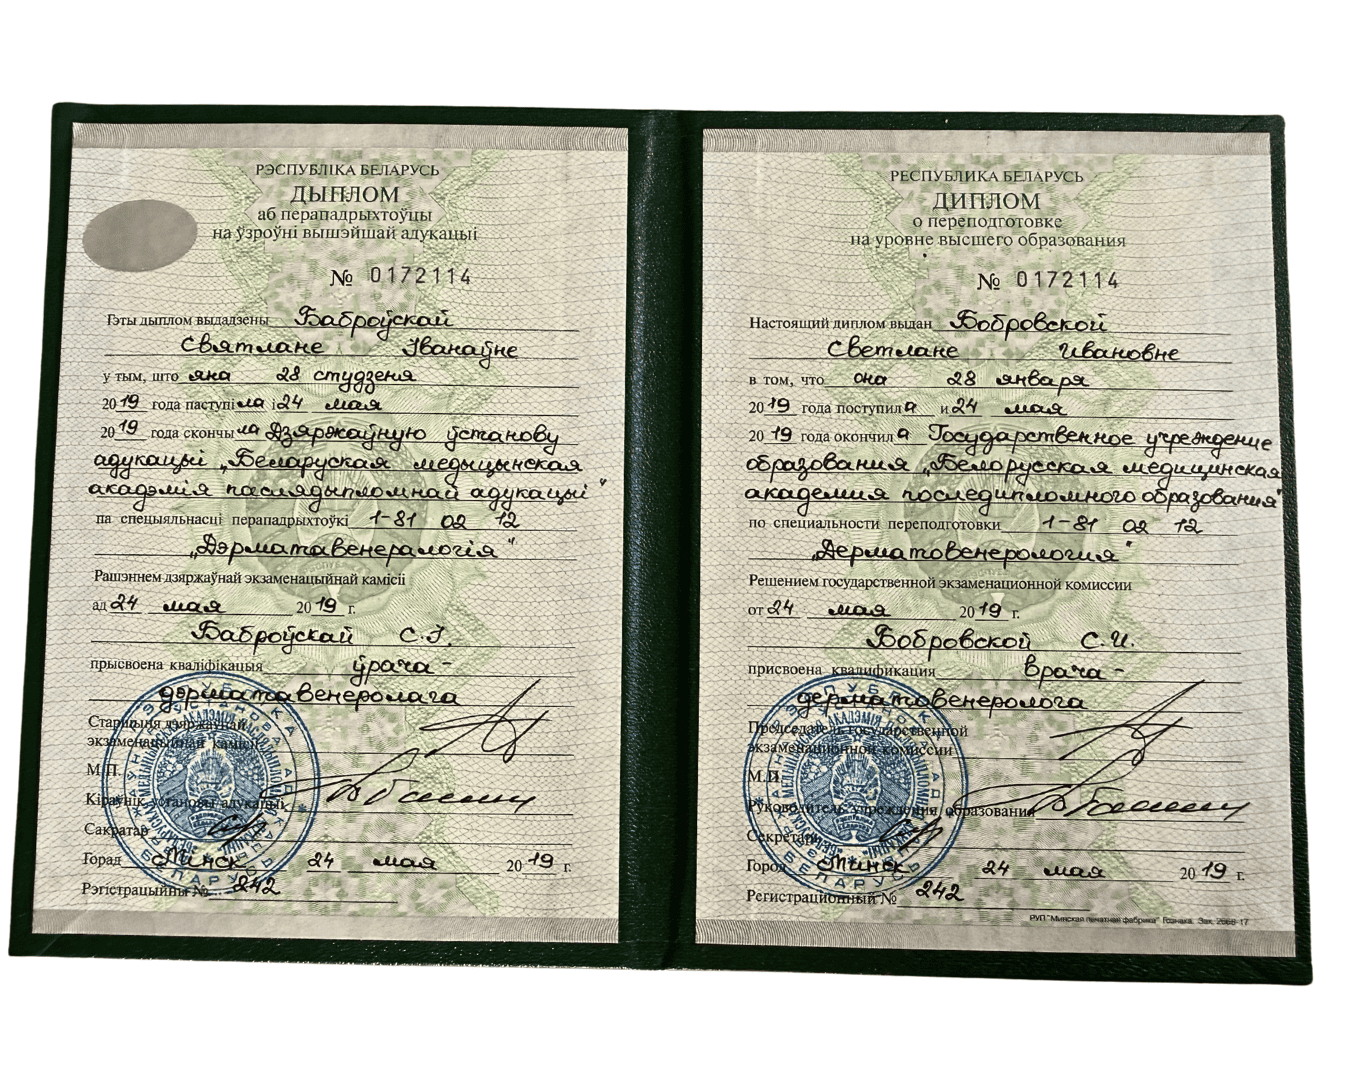 РЭСПУБЛІКА БЕЛАРУСЬ
ДЫПЛОМ
аб перападрыхтоўцы
на ўзроўні вышэйшай адукацыі
№ 0172114
Гэты дыплом выдадзены Баброўскай
Святлане Іванаўне
у тым, што яна 28 студзеня
2019 года паступіла і 24 мая
2019 года скончыла Дзяржаўную ўстанову
адукацыі „Беларуская медыцынская
акадэмія паслядыпломнай адукацыі"
па спецыяльнасці перападрыхтоўкі 1-81 02 12
„Дэрматавенералогія"
Рашэннем дзяржаўнай экзаменацыйнай камісіі
ад 24 мая 2019 г.
Баброўскай С.І.
прысвоена кваліфікацыя ўрача-
дэрматавенеролага
Старшыня дзяржаўнай
экзаменацыйнай камісіі
М.П.
Кіраўнік установы адукацыі
Сакратар
Горад Мінск 24 мая 2019 г.
Рэгістрацыйны № 242
РЕСПУБЛИКА БЕЛАРУСЬ
ДИПЛОМ
о переподготовке
на уровне высшего образования
№ 0172114
Настоящий диплом выдан Бобровской
Светлане Ивановне
в том, что она 28 января
2019 года поступила и 24 мая
2019 года окончила Государственное учреждение
образования „Белорусская медицинская
академия последипломного образования"
по специальности переподготовки 1-81 02 12
„Дерматовенерология"
Решением государственной экзаменационной комиссии
от 24 мая 2019 г.
Бобровской С.И.
присвоена квалификация врача-
дерматовенеролога
Председатель государственной
экзаменационной комиссии
М.П.
Руководитель учреждения образования
Секретарь
Город Минск 24 мая 2019 г.
Регистрационный № 242
РУП "Минская печатная фабрика" Гознака. Зак. 2668-17